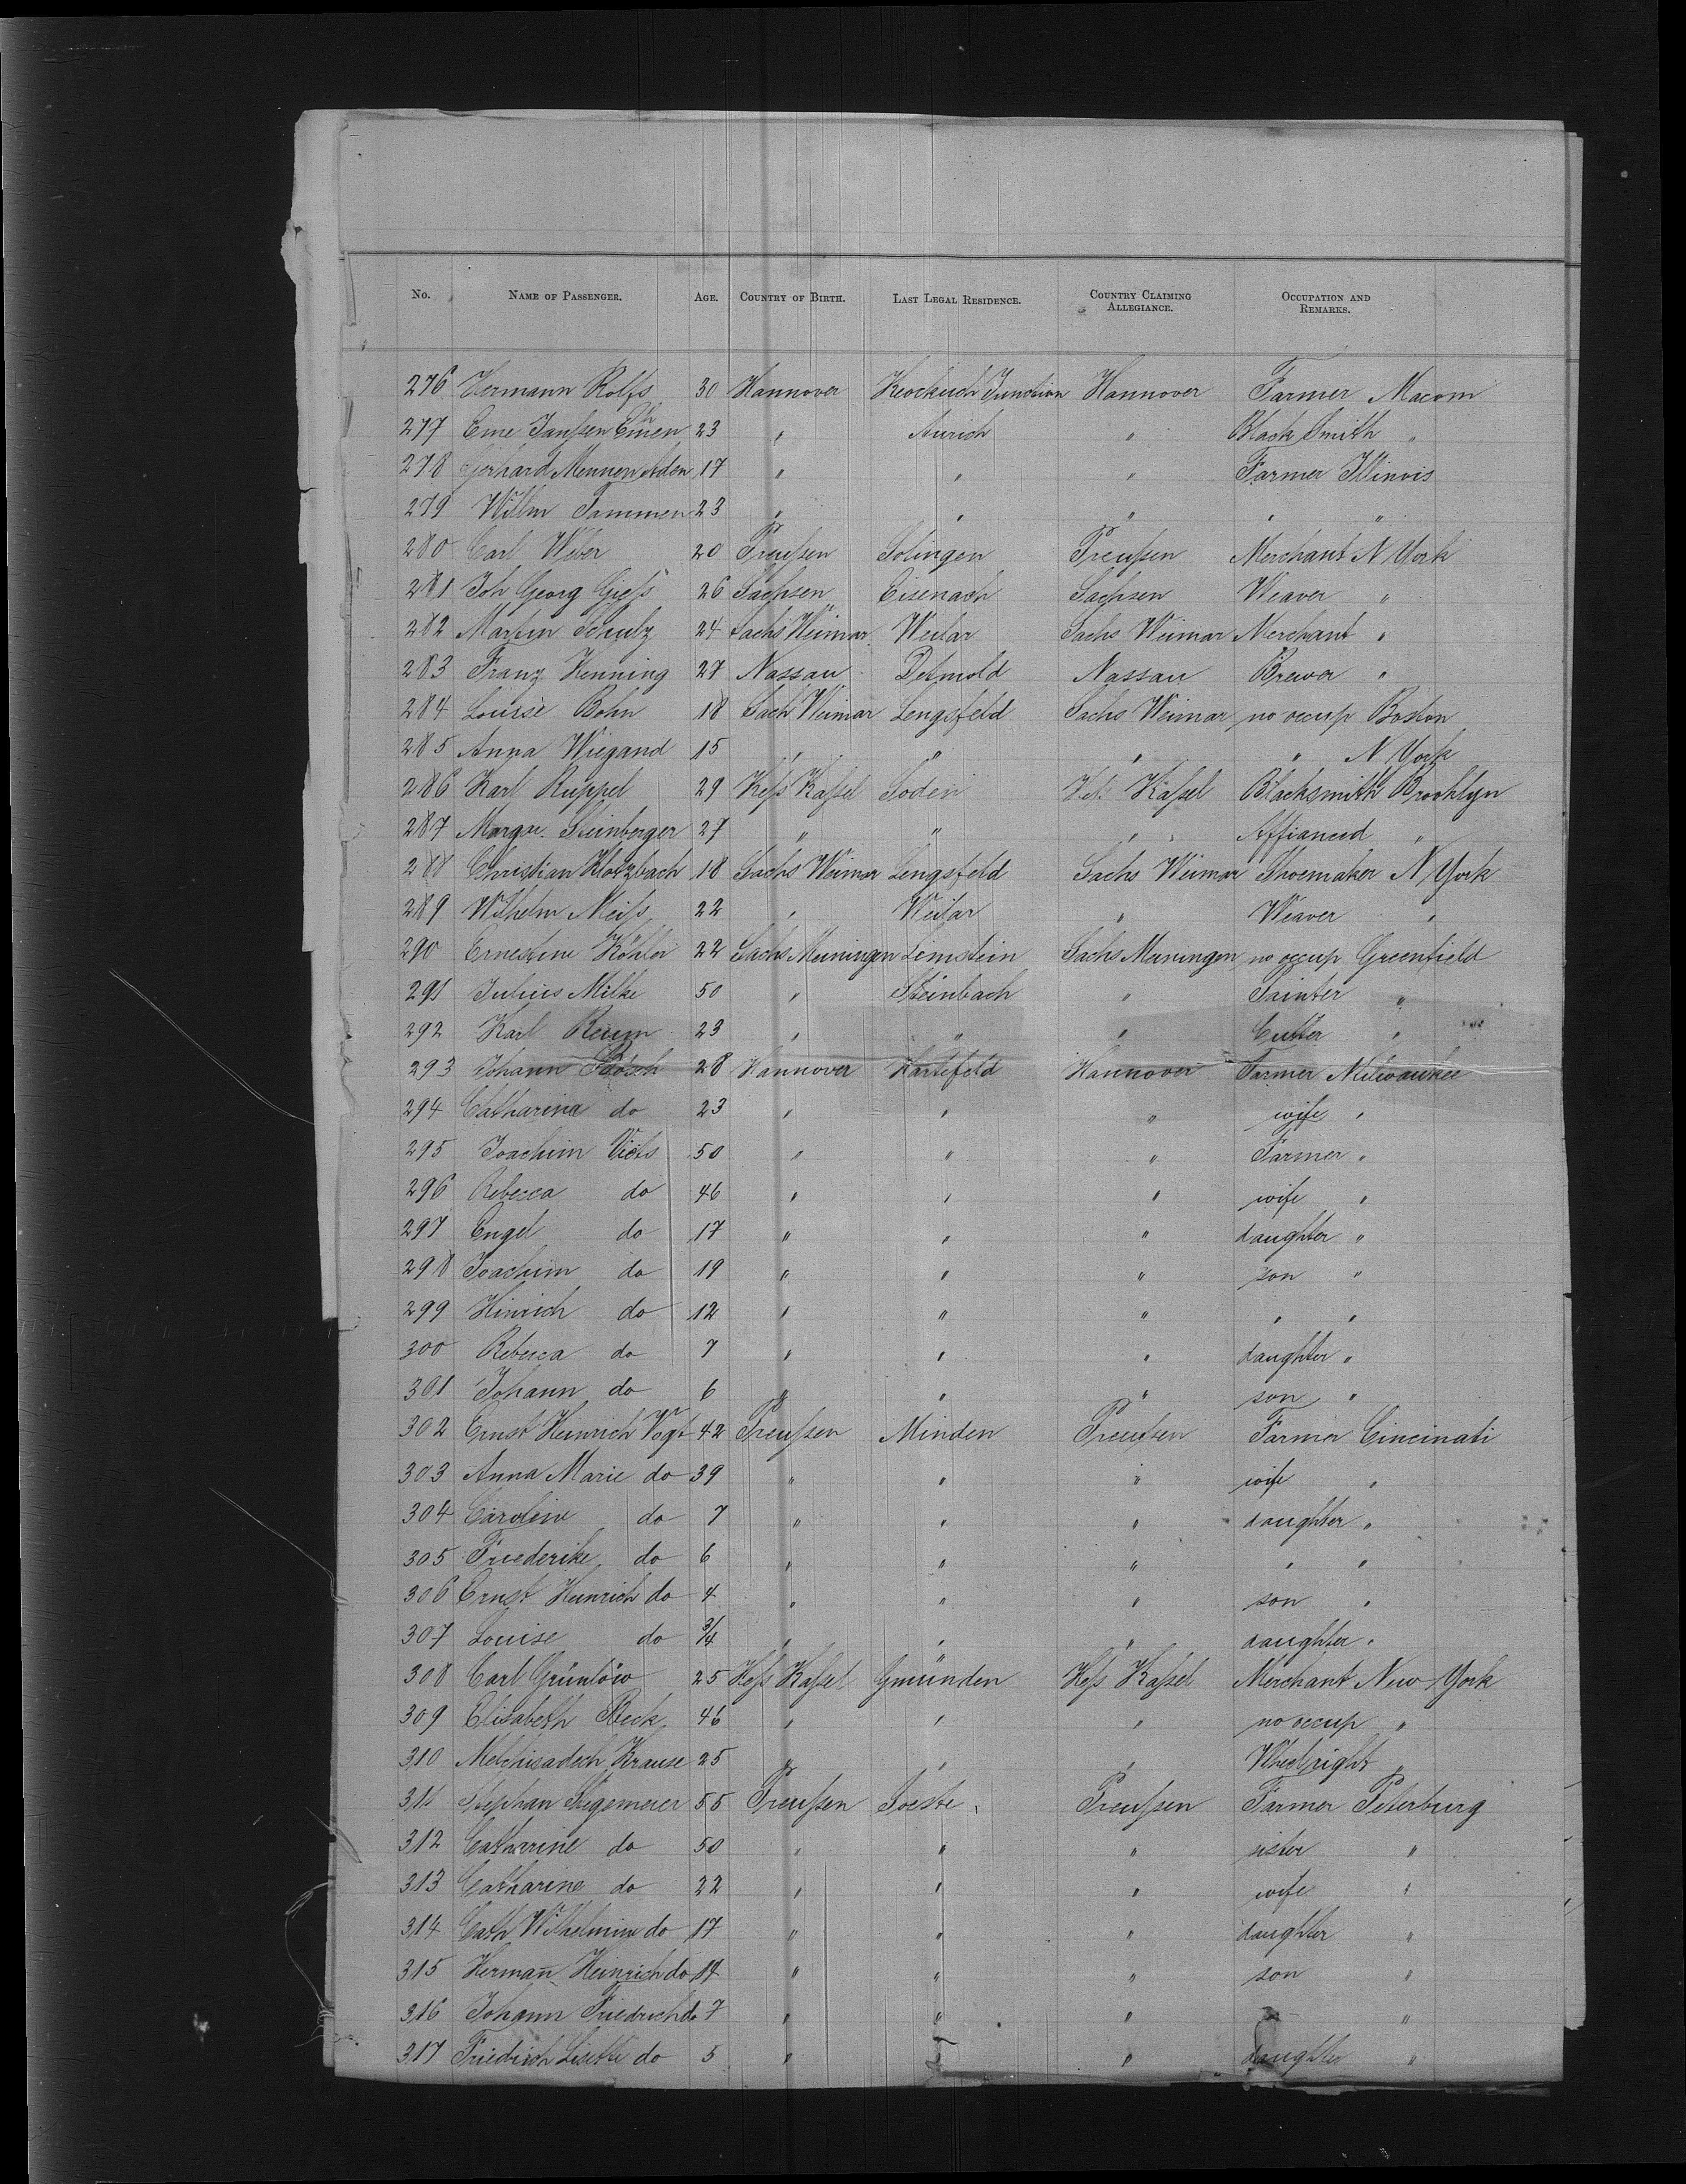 No. NAME OF PASSENGER. AGE. COUNTRY OF BIRTH. LAST LEGAL RESIDENCE. COUNTRY CLAIMING ALLEGIANCE. OCCUPATION AND REMARKS.
276 Hermann Rolfs 30 Hannover Junction Hannover Farmer Macom
277 Janſsen 23 " Aurich " Black Smith "
278 Gerhard Mennen Aden 17 " " " Farmer Illinois
279 Wilm Tammen 23 " " " " "
280 Carl Weber 20 Preuſsen Solingen Preuſsen Merchant N York
281 Joh Georg Gieſs 26 Sachsen Eisenach Sachsen Weaver "
282 Martin Schulz 24 Sachs Weimar Weilar Sachs Weimar Merchant "
283 Franz Henning 27 Nassau Detmold Nassau Brewer "
284 Louise Bohn 18 Sach Weimar Lengsfeld Sachs Weimar no occup Boston
285 Anna Wiegand 15 " " " " N York
286 Karl Ruppel 29 Heſs Kaſsel Soden Heſs Kaſsel Blacksmith Brooklyn
287 Margr. Steinberger 27 " " " Affianced "
288 Christian Klotzbach 18 Sachs Weimar Lengsfeld Sachs Weimar Shoemaker N York
289 Wilhelm Meiſs 22 " Weilar " Weaver "
290 Ernestine Köhler 22 Sachs Meiningen Sachs Meiningen no occup Greenfield
291 Julius Milke 50 " Steinbach " "
292 Karl Reum 23 " " " Cutter "
293 Johann 28 Hannover Hannover Farmer Milwaukee
294 Catharina do 23 " " " wife "
295 Joachim 50 " " " Farmer "
296 Rebecca do 46 " " " wife "
297 Engel do 17 " " " daughter "
298 Joachim do 19 " " " son "
299 Hinrich do 12 " " " " "
300 Rebecca do 7 " " " daughter "
301 Johann do 6 " " " son "
302 Ernst Heinrich Vogt 42 Preuſsen Minden Preuſsen Farmer Cincinati
303 Anna Marie do 39 " " " wife "
304 Caroline do 7 " " " daughter "
305 Friederike do 6 " " " " "
306 Ernst Heinrich do 4 " " " son "
307 Louise do 3/4 " " " daughter "
308 Carl 25 Heſs Kaſsel Gmünden Heſs Kaſsel Merchant New York
309 Elisabeth Reck 46 " " " no occup "
310 Krause 25 " " " "
311 Stephan Stegemeier 55 Preuſsen Soeste Preuſsen Farmer Peterburg
312 Catharine do 50 " " " sister "
313 Catharine do 22 " " " wife "
314 Cath Wilhelmine do 17 " " " daughter "
315 Hermañ Heinrich do " " " son "
316 Johann Friedrich do 7 " " " "
317 Friedrich Lisette do 5 " " daughter "